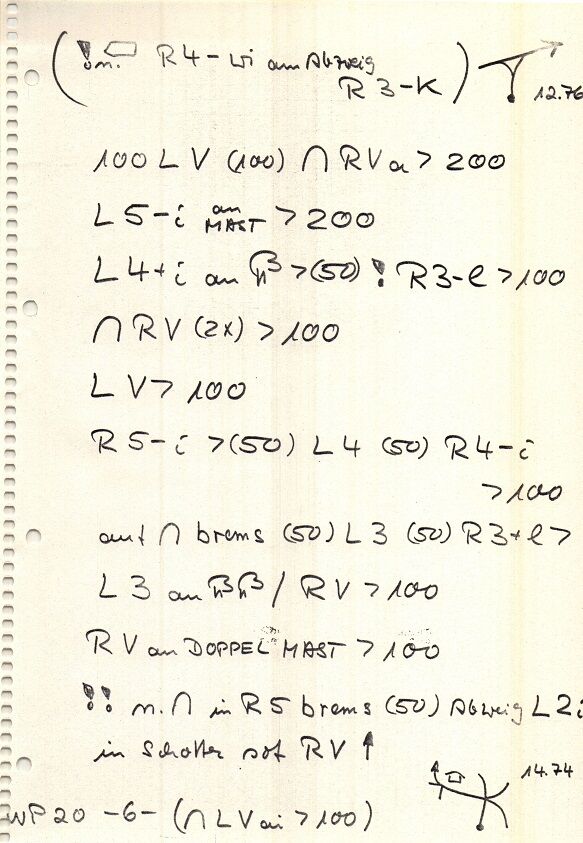 (! n. R4-wi am Abzweig
R3-K) 12.76
100 LV (100) ∩ RVa > 200
L5-i an MAST > 200
L4+i an > (50) ! R3-l > 100
∩ RV (2x) > 100
LV > 100
R5-i > (50) L4 (50) R4-i
> 100
auf ∩ brems (50) L3 (50) R3+l >
L3 an / RV > 100
RV an DOPPEL MAST > 100
!! n. ∩ in R5 brems (50) Abzweig L2i
in Schotter sof RV ↑
14.74
WP20 -6- (∩ LVai > 100)